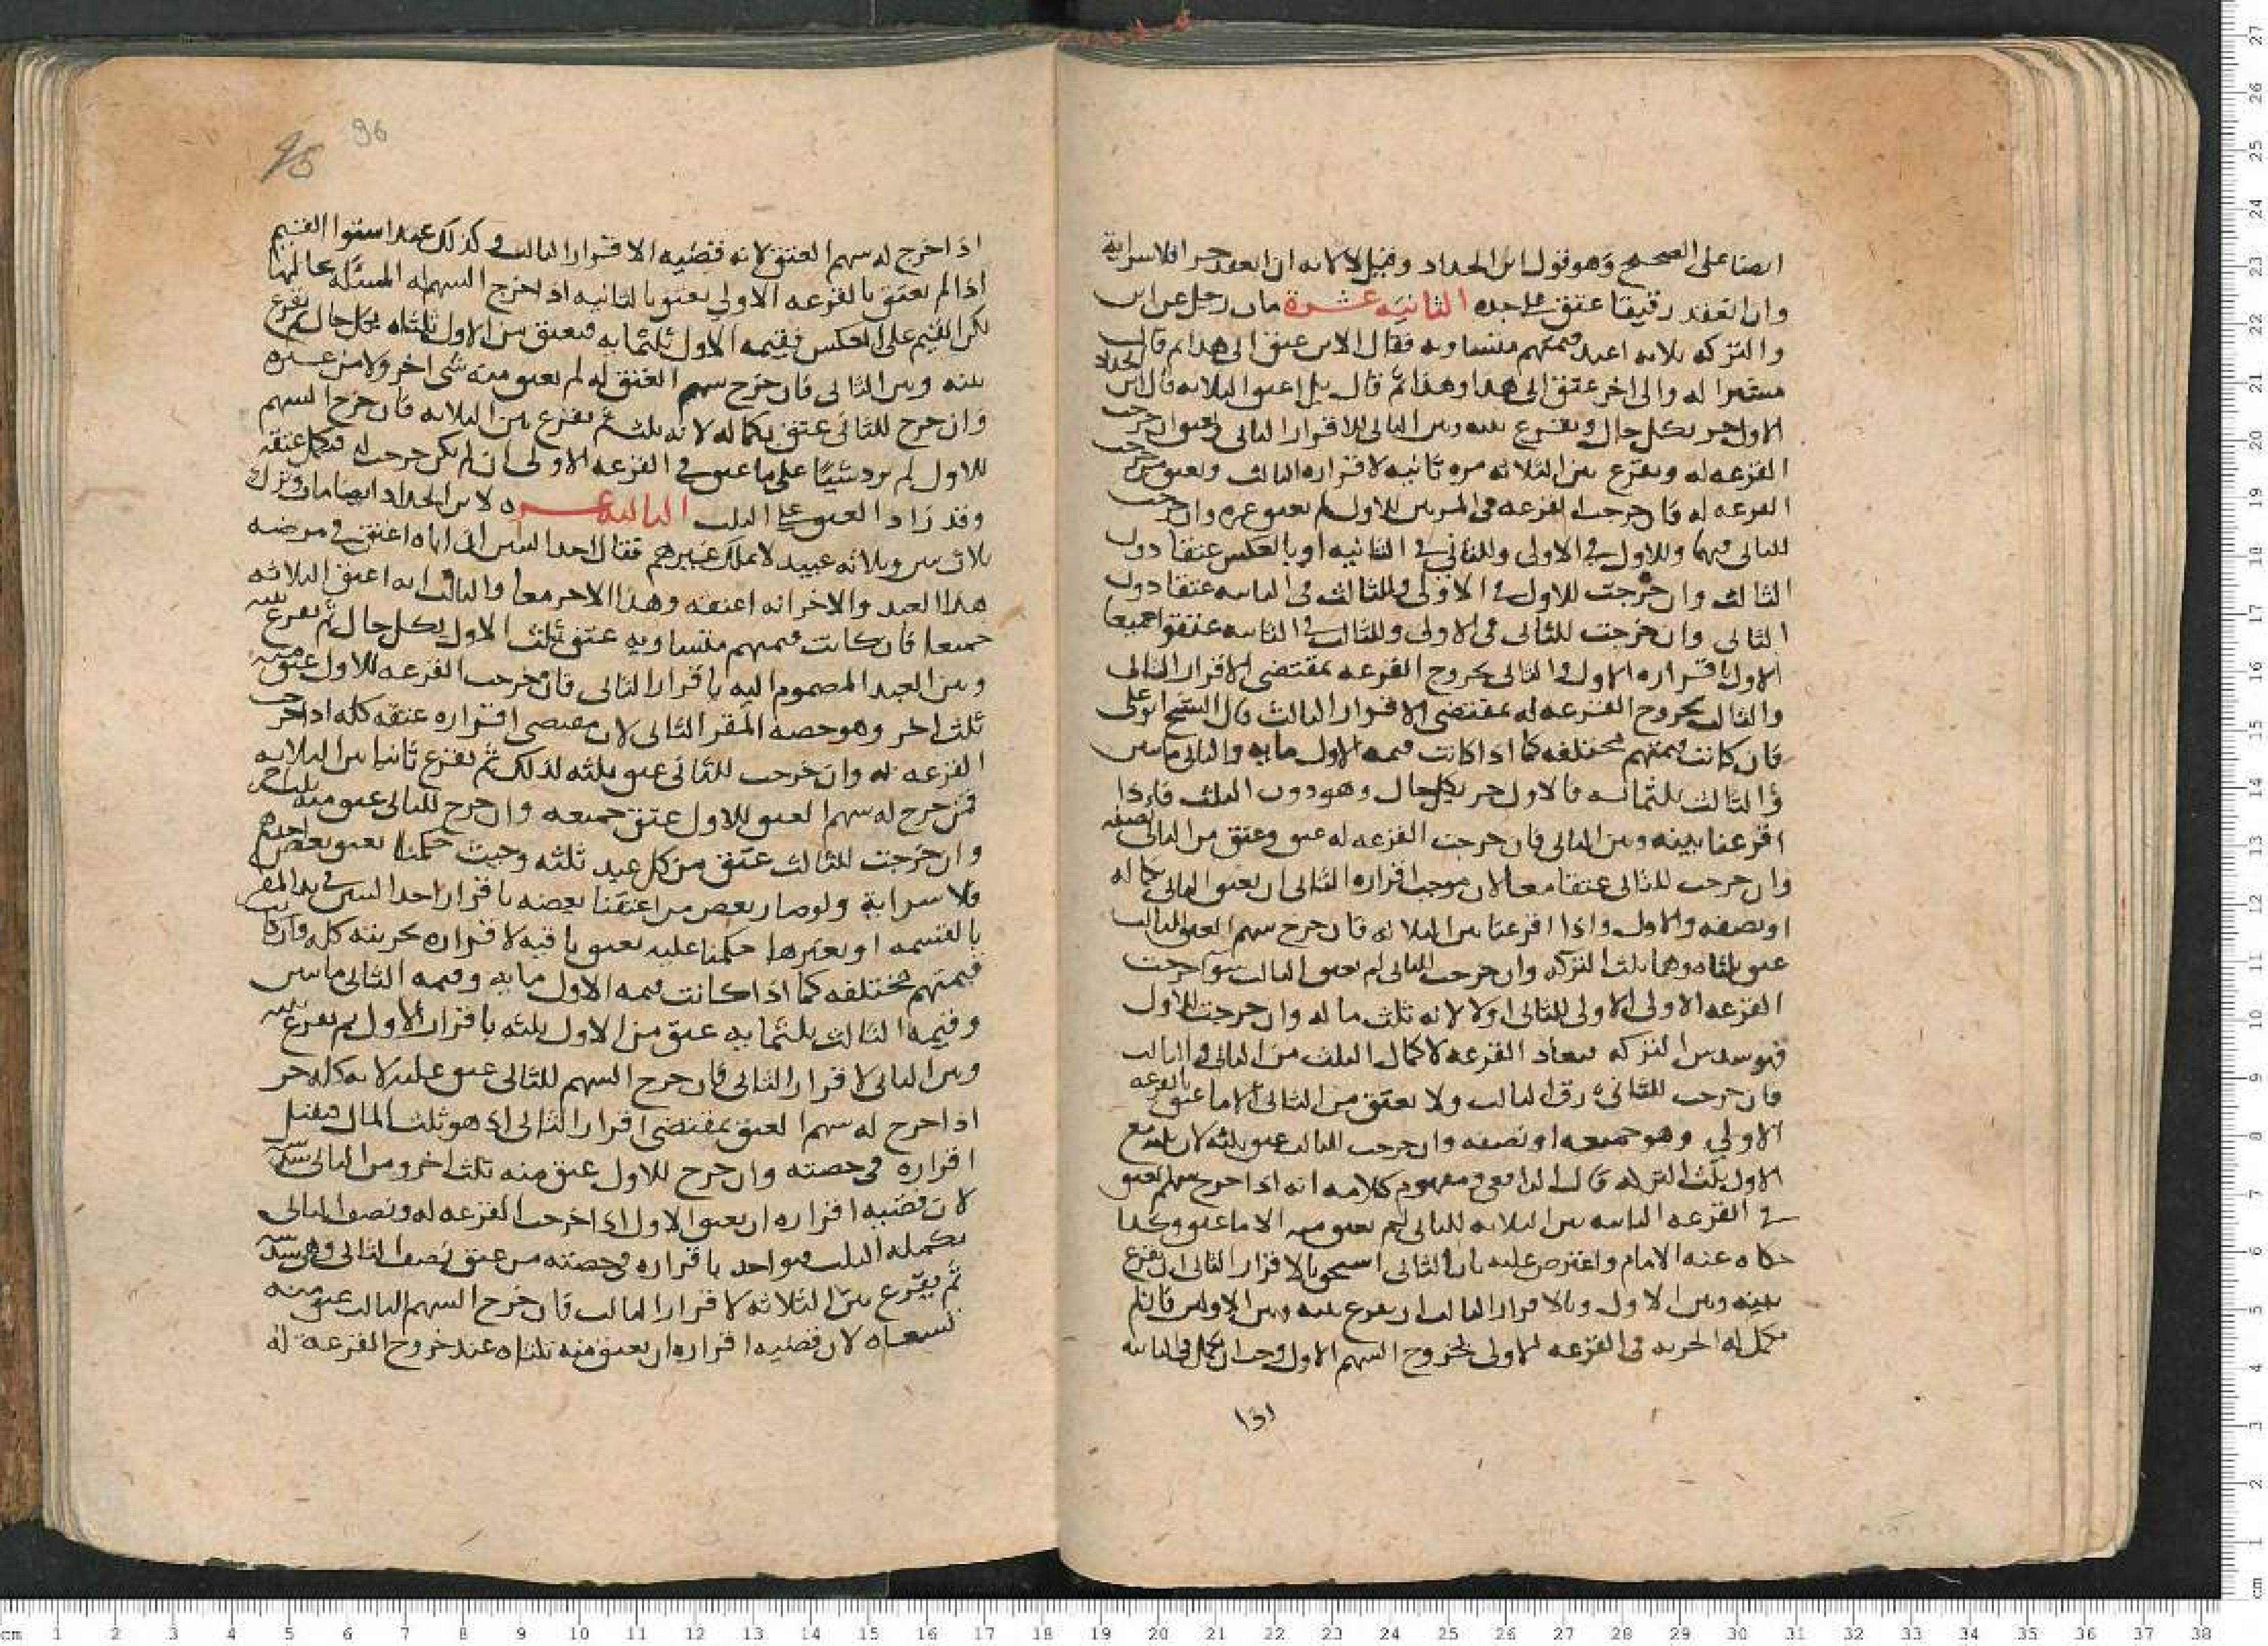 ايضا على الصحيح وهو قول ابن الحداد وقيل لا لانه ان انعقد حر افلا سراية
وان انعقد رقيقا عتق على جده الثانية عشرة مات رجل عن ابن
والتركه ثلاثه اعبد قيمتهم متساويه فقال الابن عتق ابى هذا ثم قال
مشيرا له والى اخر عتق ابى هذا وهذا ثم قال بل اعتق الثلاثه قال ابن الحداد
الاول حر بكل حال ويقرع بينه وبين الثانى للاقرار الثانى ويعتق ان خرجت
القرعه له ويقرع بين الثلاثه مره ثانيه لاقراره الثالث ويعتق من خرجت
القرعه له فان خرجت القرعه فى المرتين للاول لم يعتق غيره وان خرجت
للثانى فيهما وللاول فى الاولى وللثانى فى الثانيه او بالعكس عتقا دون
الثالث وان خرجت للاول فى الاولى وللثالث فى الثانيه عتقا دون
الثانى وان خرجت للثانى فى الاولى وللثالث فى الثانيه عتقوا جميعا
الاول باقراره الاول والثانى بخروج القرعه بمقتضى الاقرار الثانى
والثالث بخروج القرعه له بمقتضى الاقرار الثالث قال الشيخ ابو على
فان كانت قيمتهم مختلفه كما اذا كانت قيمه الاول مايه والثانى مايتين
والثالث ثلثمايه فالاول حر بكل حال وهو دون الثلث فاذا
اقرعنا بينه وبين الثانى فان خرجت القرعه له عتق وعتق من الثانى نصفه
وان خرجت للثانى عتقا معا لان موجب اقراره الثانى ان يعتق الثانى بكماله
او نصفه والاول واذا اقرعنا بين الثلاثه فان خرج سهم العتق للثالث
عتق ثلثاه وهما ثلث التركه وان خرجت للثانى لم يعتق الثالث سوا خرجت
القرعه الاولى للثانى اولا لانه ثلث ماله وان خرجت للاول
فهو سدس التركه فتعاد القرعه لاكمال الثلث من الثانى والثالث
فان خرجت للثانى رق الثالث ولا يعتق من الثانى الا ما عتق بالقرعه
الاولى وهو جميعه او نصفه وان خرجت للثالث عتق ثلثه لان ثلثه مع
الاول ثلث التركه قال الرافعى ومفهوم كلامه انه اذا خرج سهم العتق
فى القرعه الثانيه بين الثلاثه للثانى لم يعتق منه الا ما عتق وكذا
حكاه عنه الامام واعترض عليه بان الثانى استحق بالاقرار الثانى ان يقرع
بينه وبين الاول وبالاقرار الثالث ان يقرع بينه وبين الاولين فان لم
تكمل له الحريه فى القرعه الاولى لخروج السهم الاول وجب ان تكمل فى الثانيه
اذا
96
95
اذا خرج له سهم العتق لانه قضيه الاقرار الثالث وكذلك عند استوا القيم
اذا لم يعتق بالقرعه الاولى يعتق بالثانيه اذا خرج السهم له المسئله بحالها
لكن القيم على العكس فقيمه الاول ثلثمايه فيعتق من الاول ثلثاه بكل حال ثم يقرع
بينه وبين الثانى فان خرج سهم العتق له لم يعتق منه شى اخر ولا من غيره
وان خرج للثانى عتق بكماله لانه ثلث ثم يقرع بين الثلاثه فان خرج السهم
للاول لم يزد شيئا على ما عتق فى القرعه الاولى ان لم يكن خرجت له فيكمل عتقه
وقد زاد العتق على الثلث الثالثة عشره لابن الحداد ايضا مات وترك
ثلاث بنين وثلاثه عبيد لا يملك غيرهم فقال احد البنين ان اباه اعتق فى مرضه
هذا العبد والاخر انه اعتقه وهذا الاخر معا والثالث انه اعتق الثلاثه
جميعا فان كانت قيمتهم متساويه عتق ثلث الاول بكل حال ثم يقرع بينه
وبين العبد المضموم اليه باقرار الثانى فان خرجت القرعه للاول عتق منه
ثلث اخر وهو حصه المقر الثانى لان مقتضى اقراره عتقه كله اذا خرجت
القرعه له وان خرجت للثانى عتق ثلثه لذلك ثم يقرع ثانيا بين الثلاثه
فمن خرج له سهم العتق للاول عتق جميعه وان خرج للثانى عتق منه ثلث اخر
وان خرجت للثالث عتق من كل عبد ثلثه وحيث حكمنا بعتق بعض احدهم
فلا سراية ولو صار بعض من اعتقنا بعضه باقرار احد البنين فى يد المقر
بالقسمه او بغيرها حكمنا عليه بعتق باقيه لاقراره بحريته كله وان كانت
قيمتهم مختلفه كما اذا كانت قيمه الاول مايه وقيمه الثانى مايتين
وقيمه الثالث ثلثمايه عتق من الاول ثلثه باقرار الاول ثم يقرع بينه
وبين الثانى لاقرار الثانى فان خرج السهم للثانى عتق ثلثه لانه كله حر
اذا خرج له سهم العتق بمقتضى اقرار الثانى اذ هو ثلث المال فيقبل
اقراره فى حصته وان خرج للاول عتق منه ثلث اخر ومن الثانى سدسه
لان قضيه اقراره ان يعتق الاول اذا خرجت القرعه له ونصف الثانى
تكمله الثلث فيواخذ باقراره فى حصته من عتق نصف الثانى وهى سدسه
ثم يقرع بين الثلاثه لاقرار الثالث فان خرج السهم للثالث عتق منه
تسعاه لان قضيه اقراره ان يعتق منه ثلثاه عند خروج القرعه له